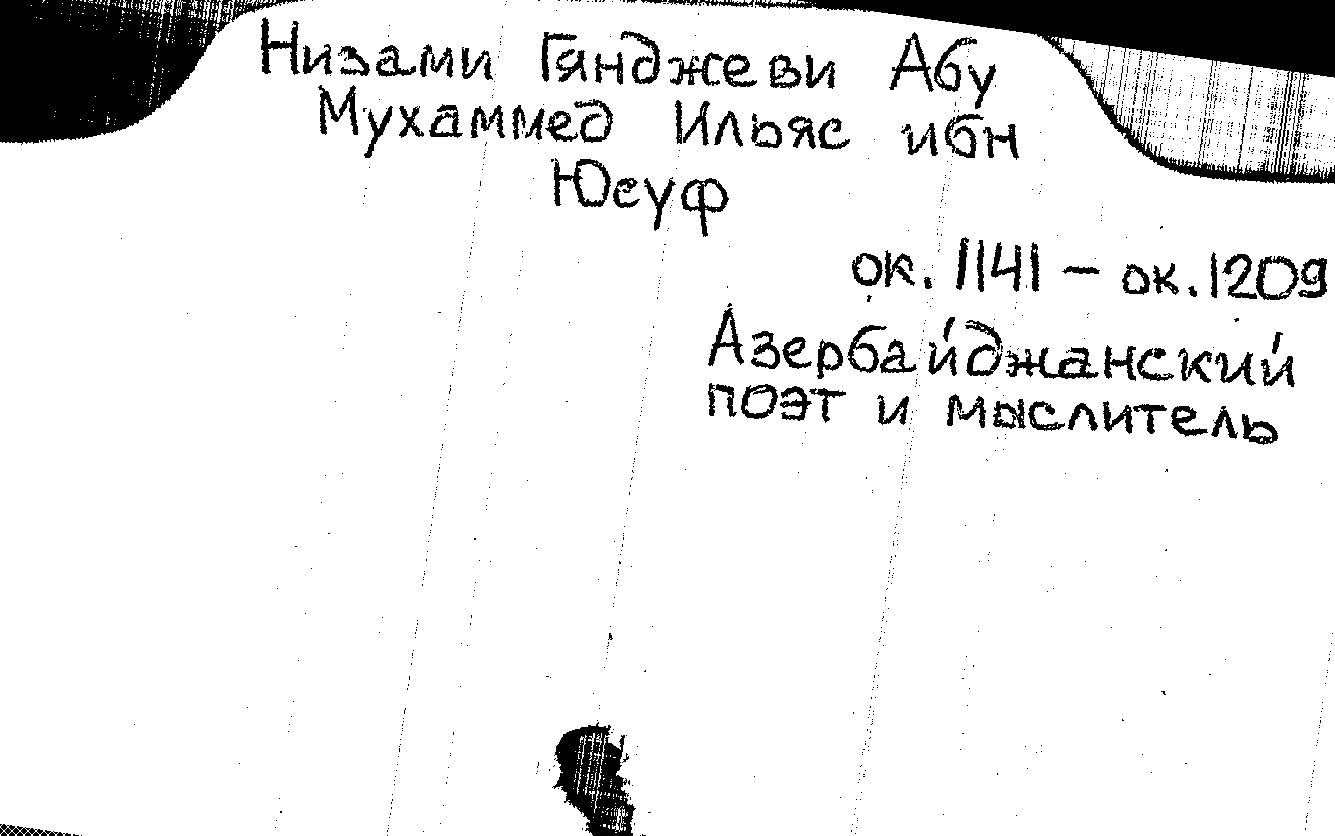 Низами Гянджеви Абу
Мухаммед Ильяс ибн
Юсуф
ок. 1141 – ок. 1209
Азербайджанский
поэт и мыслитель